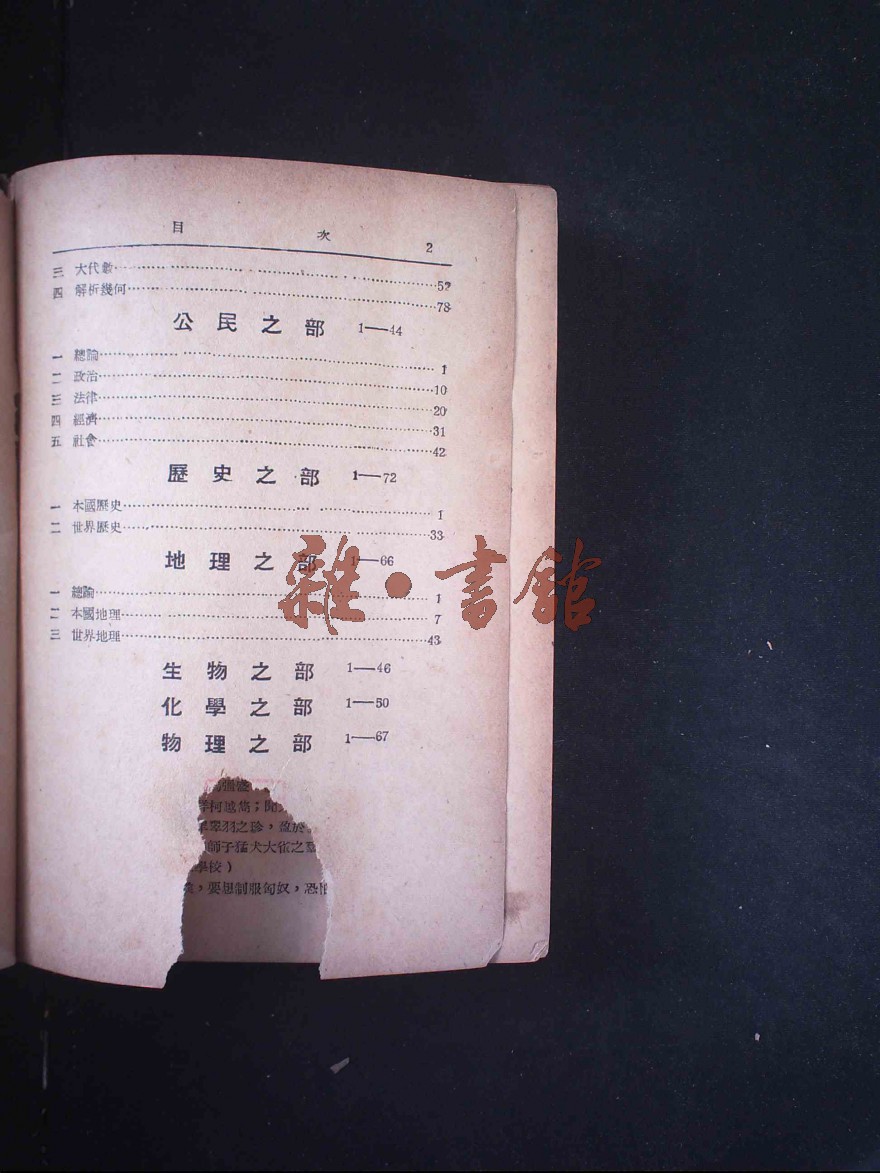 目 次 2
三 大代數 52
四 解析幾何 78
公民之部 1—44
一 總論 1
二 政治 10
三 法律 20
四 經濟 31
五 社會 42
歷史之部 1—72
一 本國歷史 1
二 世界歷史 33
地理之部 1—66
一 總論 1
二 本國地理 7
三 世界地理 43
雜·書館
生物之部 1—46
化學之部 1—50
物理之部 1—67
羽之珍,
師子猛犬大雀之
學校)
,要想制服匈奴,恐怕